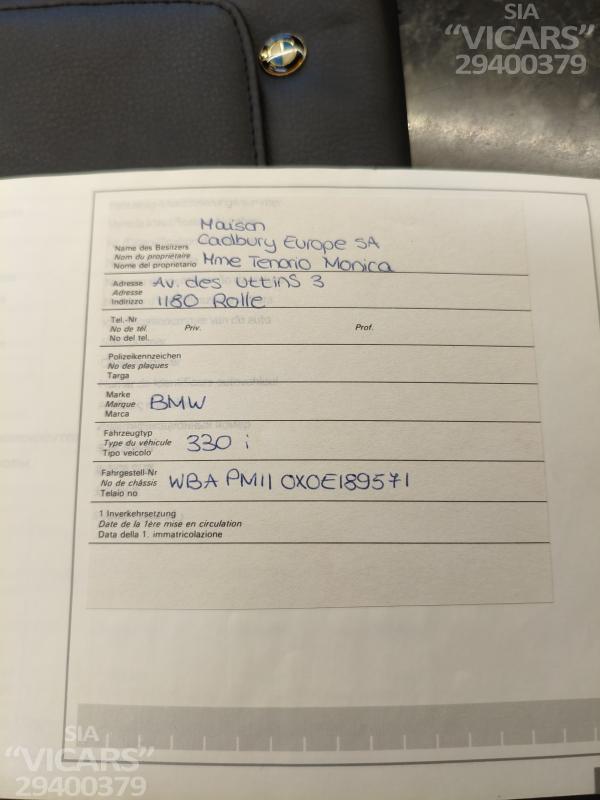 SIA
“VICARS”
29400379
Maison
Name des Besitzers Cadbury Europe SA
Nom du propriétaire
Nome del proprietario Mme Tenorio Monica
Adresse Av. des Uttins 3
Adresse
Indirizzo 1180 Rolle
Tel.-Nr
No de tél. Priv. Prof.
No del tel.
Polizeikennzeichen
No des plaques
Targa
Marke
Marque BMW
Marca
Fahrzeugtyp
Type du véhicule 330 i
Tipo veicolo
Fahrgestell-Nr
No de châssis WBA PM11 0X0E189571
Telaio no
1 Inverkehrsetzung
Date de la 1ère mise en circulation
Data della 1. immatricolazione
SIA
“VICARS”
29400379